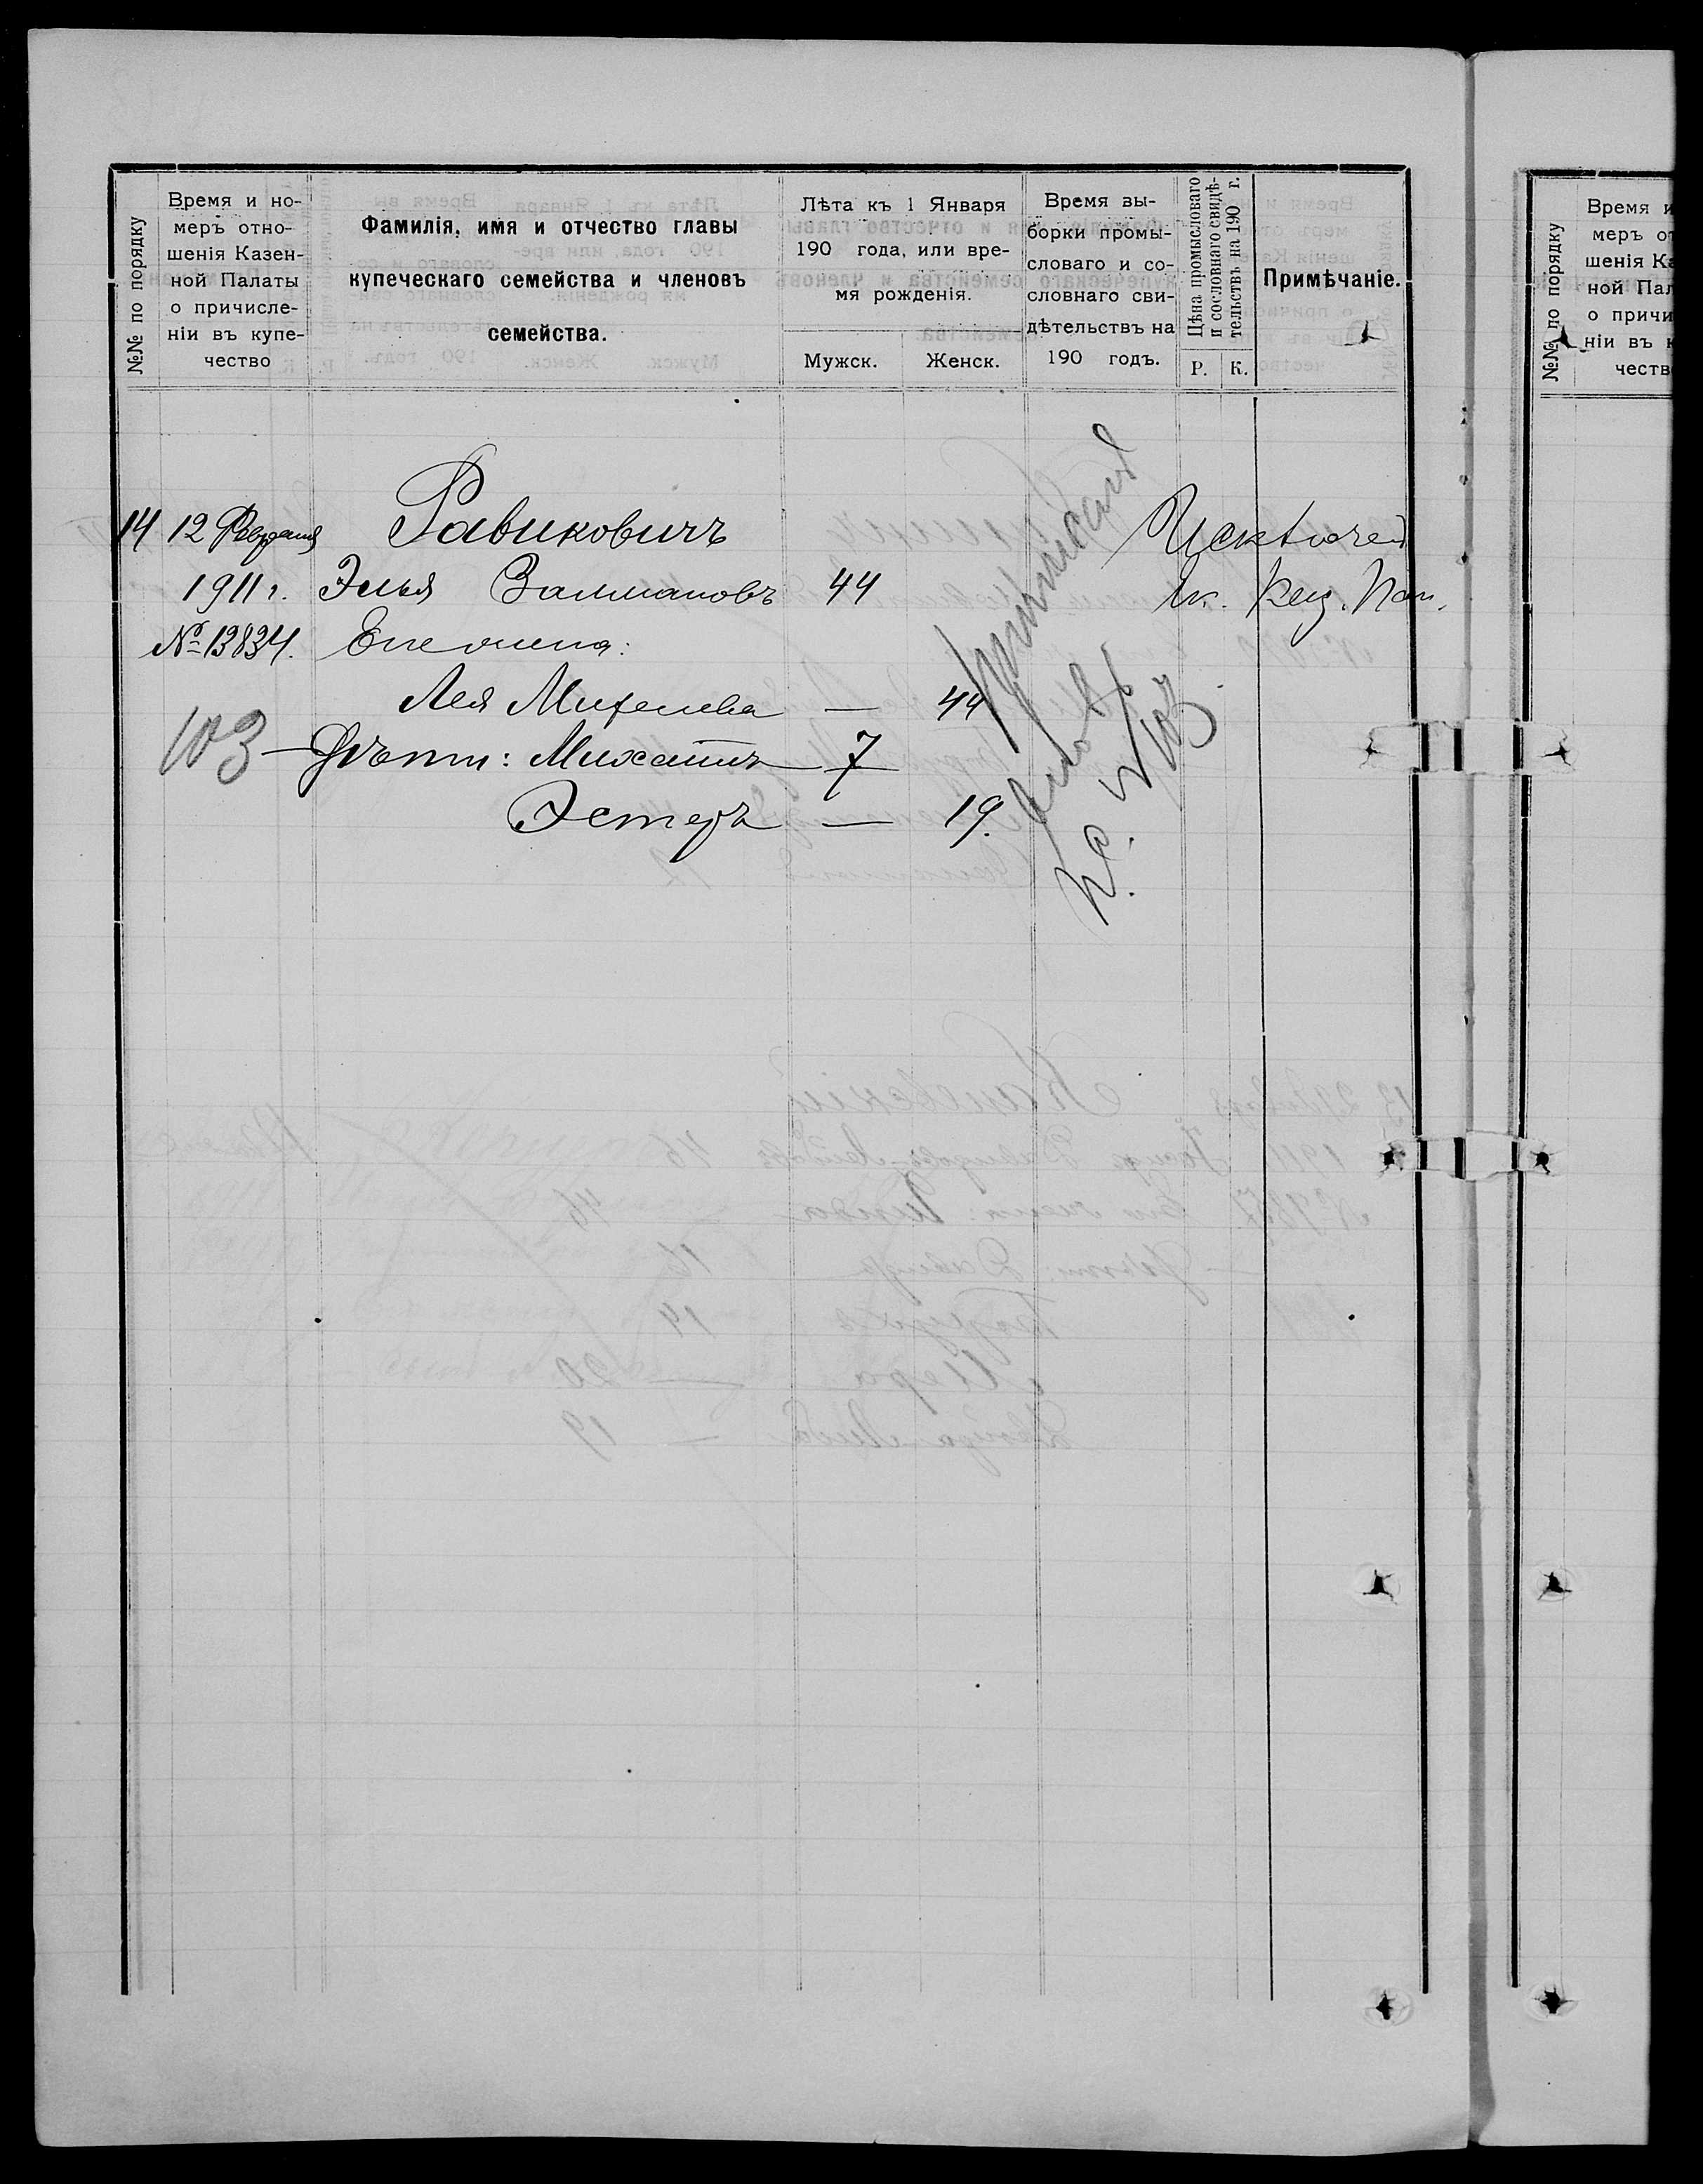 №№ по порядку
Время и но-
меръ отно-
шенія Казен-
ной Палаты
о причисле-
ніи въ купе-
чество
Фамилія, имя и отчество главы
купеческаго семейства и членовъ
семейства.
Лѣта къ 1 Января
190 года, или вре-
мя рожденія.
Мужск. Женск.
Время вы-
борки промы-
словаго и со-
словнаго сви-
дѣтельствъ на
190 годъ.
Цѣна промысловаго
и сословнаго свидѣ-
тельствъ на 190 г.
Р. К.
Примѣчаніе.
14 12 Февраля Равиковичъ
1911 г. Элья Залмановъ 44
№ 13834. Его жена:
Лея Михелева — 44
103 — Дѣти: Михаилъ — 7
Эстеръ — 19.
Приписанъ
№ 103
Исключен
Время и
меръ от
шенія Ка
ной Пал
о причи
ніи въ к
честв
№№ по порядку